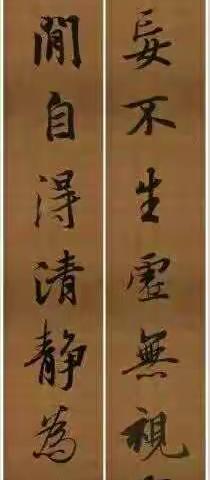 妄不生虛無視
閒自得清静為